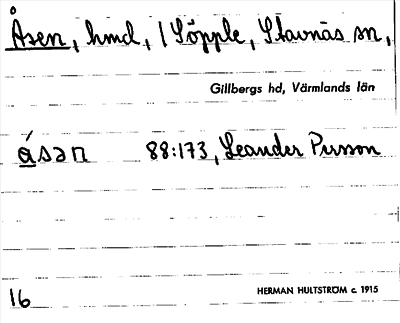 Åsen, hmd, 1 Söpple, Stavnäs sn,
Gillbergs hd, Värmlands län
åsan 88:173, Leander Persson
16 HERMAN HULTSTRÖM c. 1915